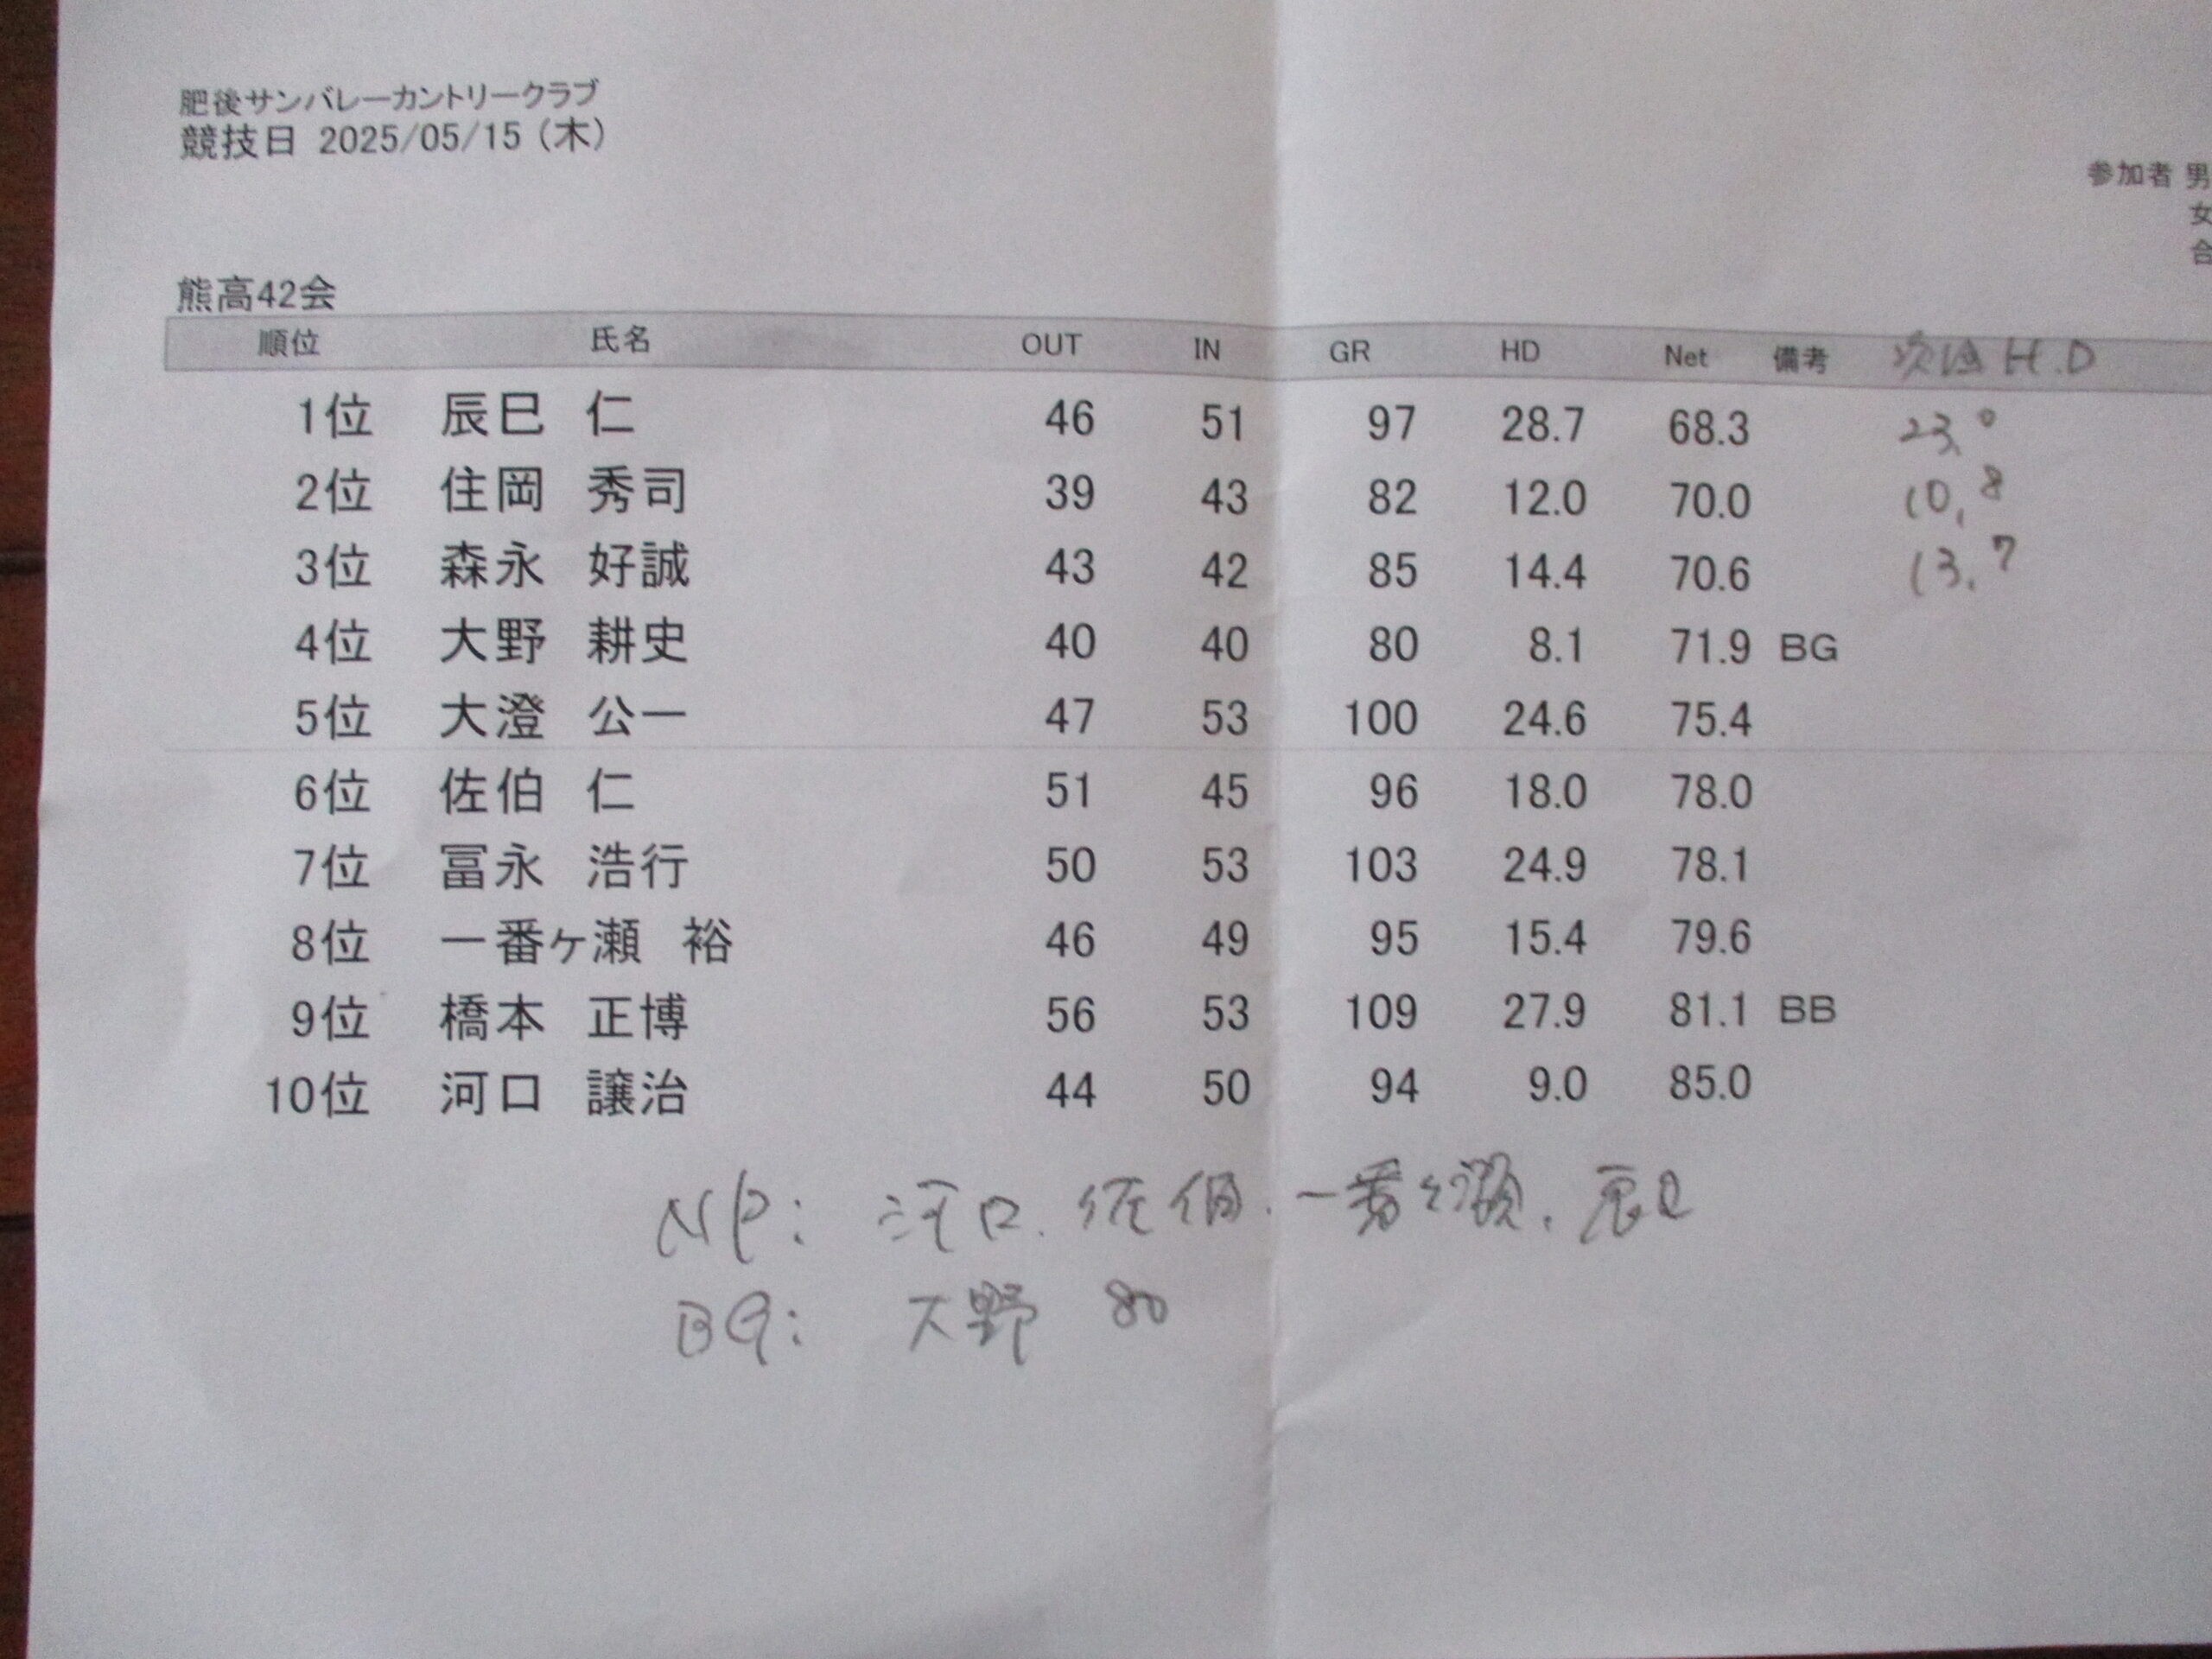 肥後サンバレーカントリークラブ
競技日 2025/05/15 (木)
参加者 男
女
合
熊高42会
順位 氏名 OUT IN GR HD Net 備考 次回 H.D
1位 辰巳 仁 46 51 97 28.7 68.3 23.0
2位 住岡 秀司 39 43 82 12.0 70.0 10.8
3位 森永 好誠 43 42 85 14.4 70.6 13.7
4位 大野 耕史 40 40 80 8.1 71.9 BG
5位 大澄 公一 47 53 100 24.6 75.4
6位 佐伯 仁 51 45 96 18.0 78.0
7位 冨永 浩行 50 53 103 24.9 78.1
8位 一番ヶ瀬 裕 46 49 95 15.4 79.6
9位 橋本 正博 56 53 109 27.9 81.1 BB
10位 河口 譲治 44 50 94 9.0 85.0
NP: 河口. 佐伯. 一番ヶ瀬. 辰巳
BG: 大野 80